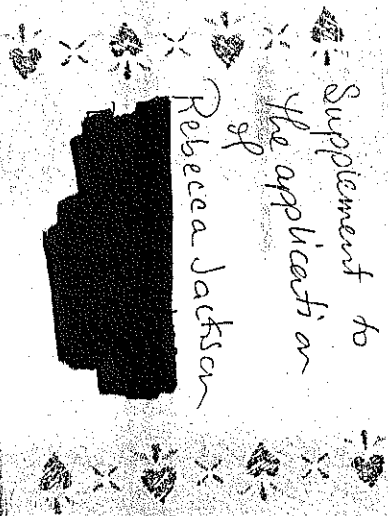 Supplement to
the application
of
Rebecca Jackson